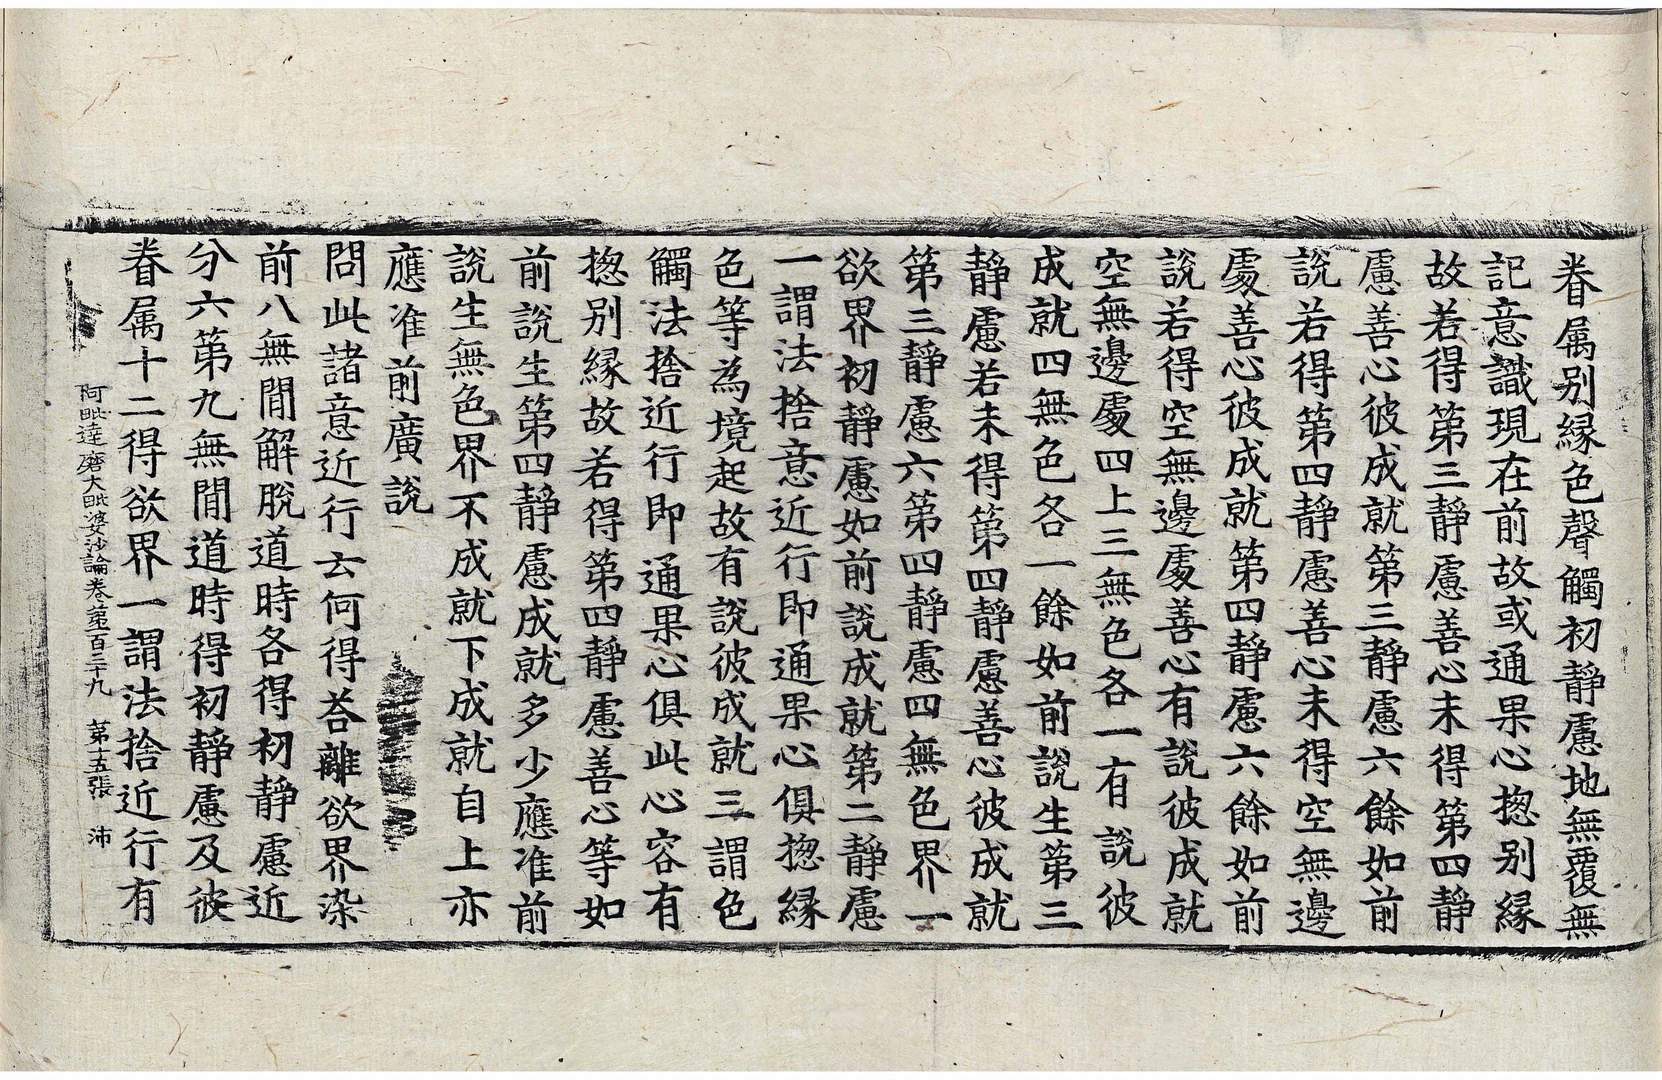 眷属别縁色聲觸初靜慮地無覆無
記意識現在前故或通果心揔别縁
故若得第三靜慮善心未得第四靜
慮善心彼成就第三靜慮六餘如前
說若得第四靜慮善心未得空無邊
處善心彼成就第四靜慮六餘如前
說若得空無邊處善心有說彼成就
空無邊處四上三無色各一有說彼
成就四無色各一餘如前說生第三
靜慮若未得第四靜慮善心彼成就
第三靜慮六第四靜慮四無色界一
欲界初靜慮如前說成就第二靜慮
一謂法捨意近行即通果心俱揔縁
色等為境起故有說彼成就三謂色
觸法捨近行即通果心俱此心容有
揔别縁故若得第四靜慮善心等如
前說生第四靜慮成就多少應准前
說生無色界不成就下成就自上亦
應准前廣說
問此諸意近行云何得荅離欲界染
前八無間解脫道時各得初靜慮近
分六第九無間道時得初靜慮及彼
眷属十二得欲界一謂法捨近行有
阿毗達磨大毗婆沙論卷苐百三十九　第十五張　沛